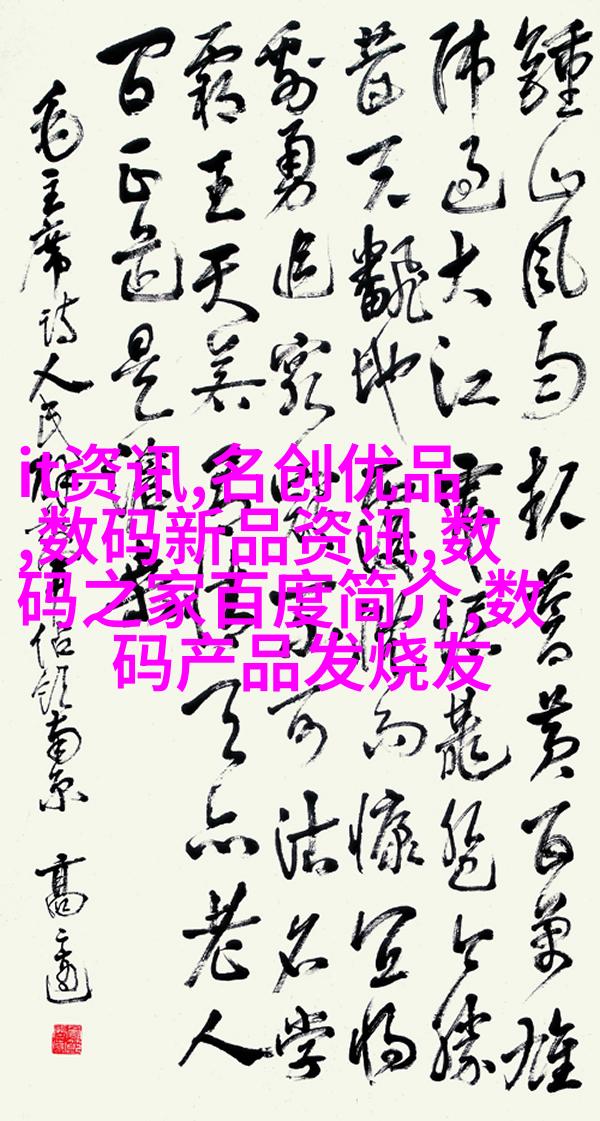 鍾山風雨起蒼黃百萬雄
師過大江虎踞龍盤今勝
昔天翻地覆慨而慷宜將
剩勇追窮寇不可沽名學
霸王天若有情天亦老人
間正道是滄桑
毛主席詩人民解放軍佔領南京 高
it资讯,名创优品
,数码新品资讯,数
码之家百度简介,数
码产品发烧友